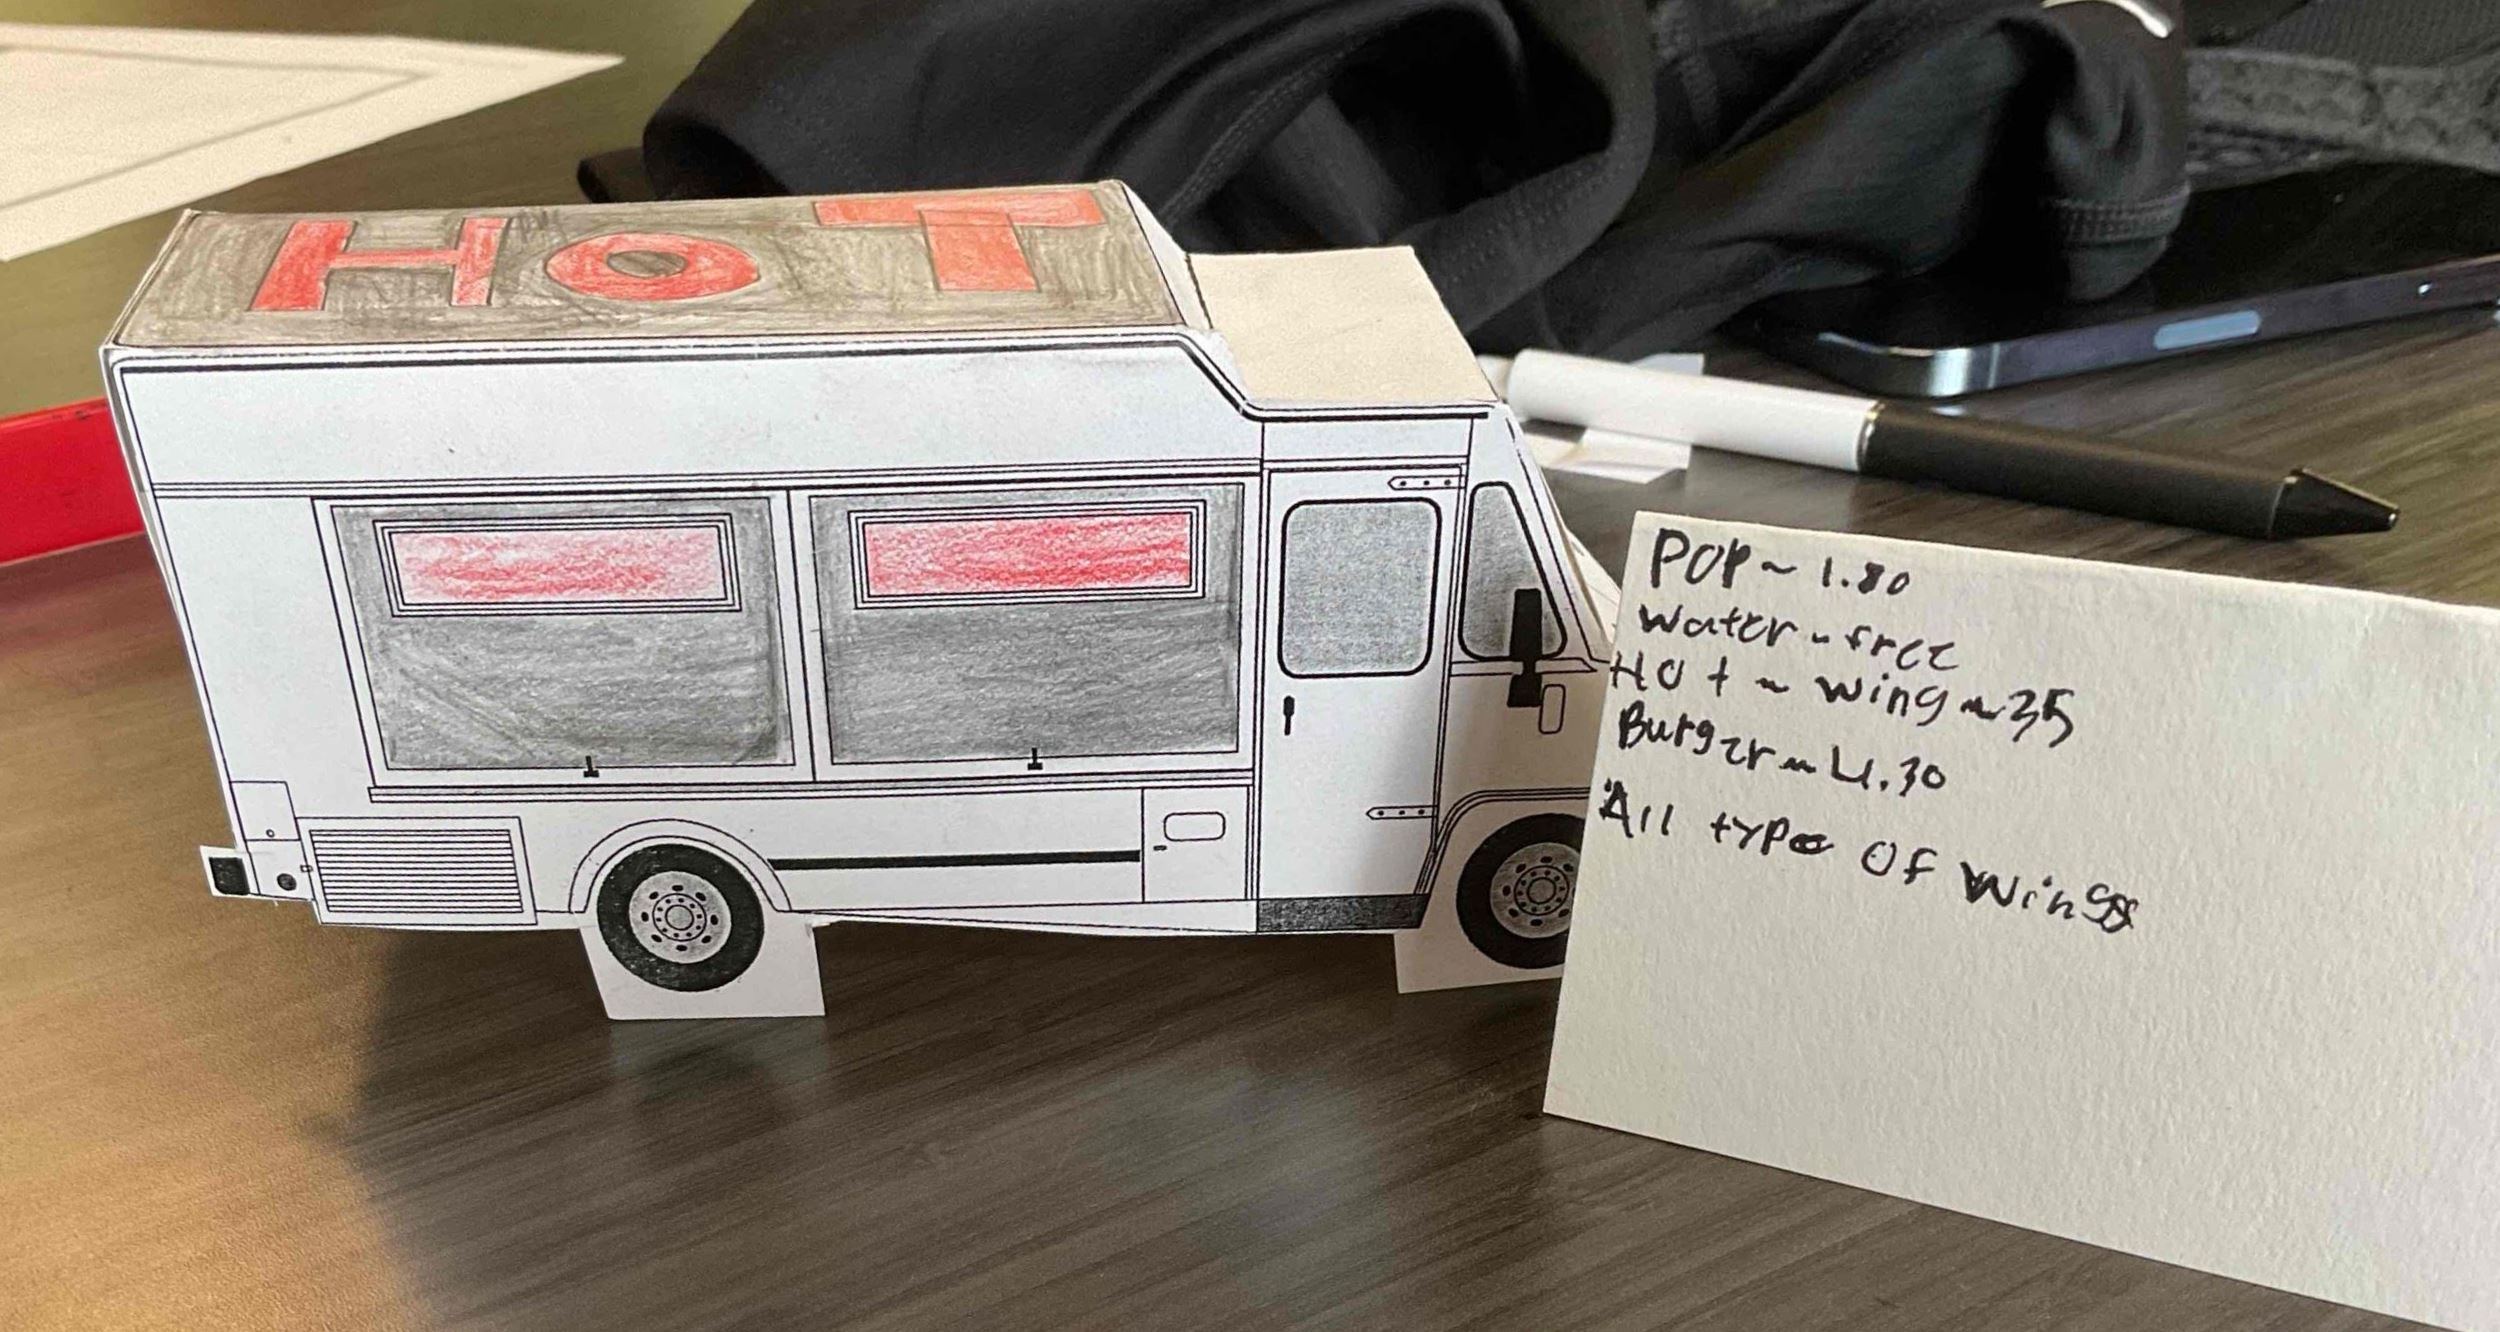 HOT
POP ~ 1.80
Water ~ free
HOt ~ wing ~ 35
Burger ~ 4.30
All type OF Wings